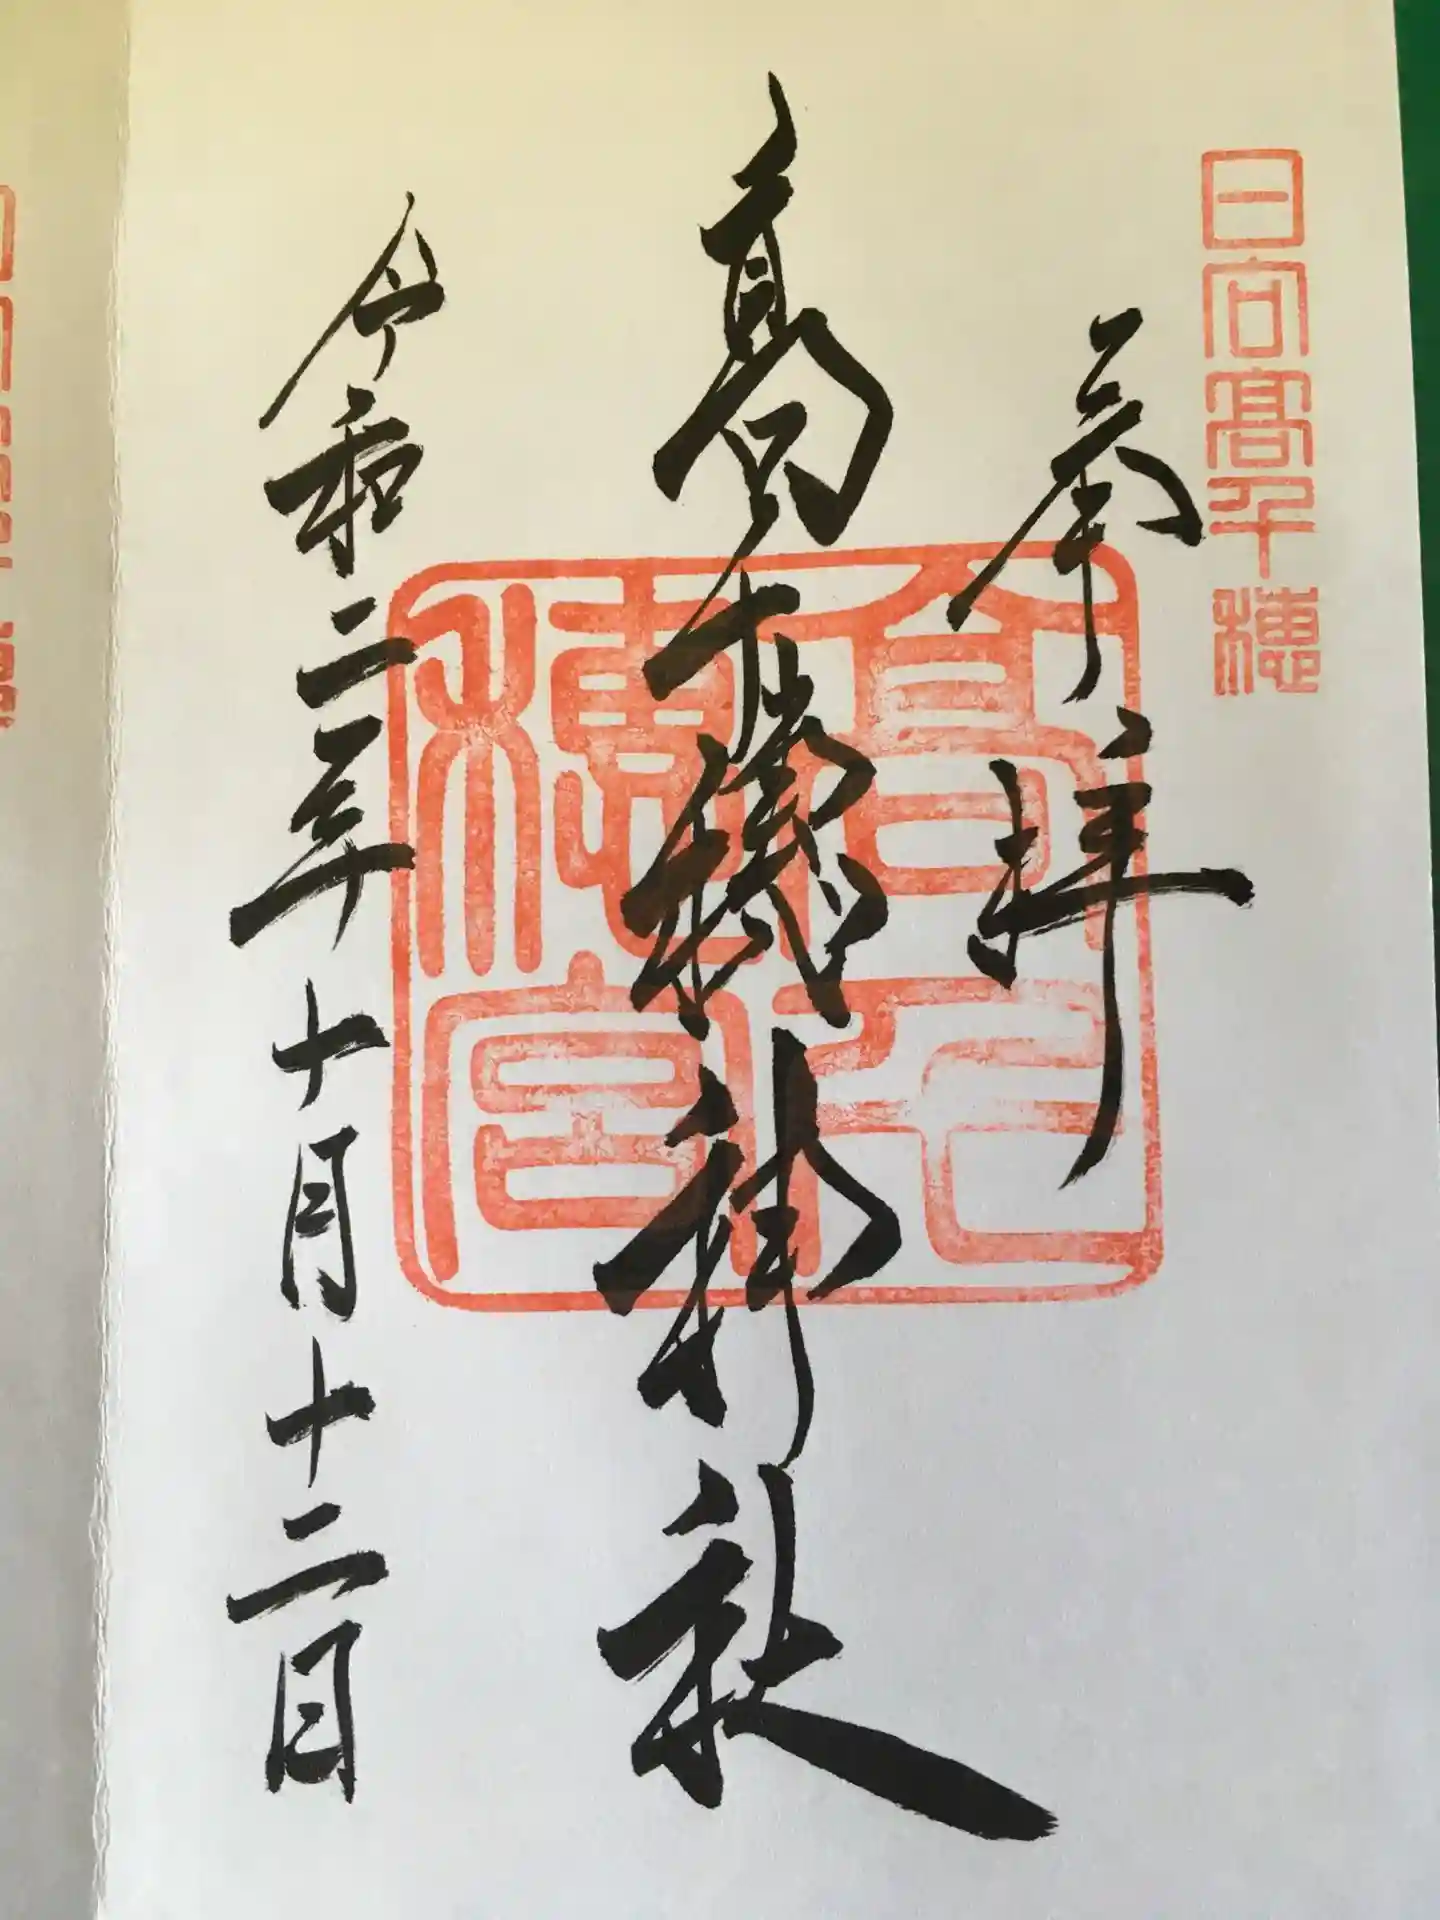 日向高千穂
奉拝
高千穂神社
高千
穂宮
令和二年十月十二日